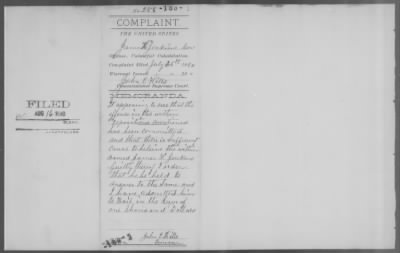 COMPLAINT.
THE UNITED STATES
James H Jenkins
Offense, Unlawful Cohabitation
Complaint filed July 26th 18
Warrant Issued
John E Hills
Commissioner Supreme Court.
MEMORANDA
It appearing to me that the
offense in the within
depositions mentioned
has been committed
and that there is sufficient
cause to believe the within
named James H Jenkins
guilty thereof I order
that he be held to
answer to the same and
I have admitted him
to Bail, in the sum of
one thousand Dollars
FILED
AUG 16